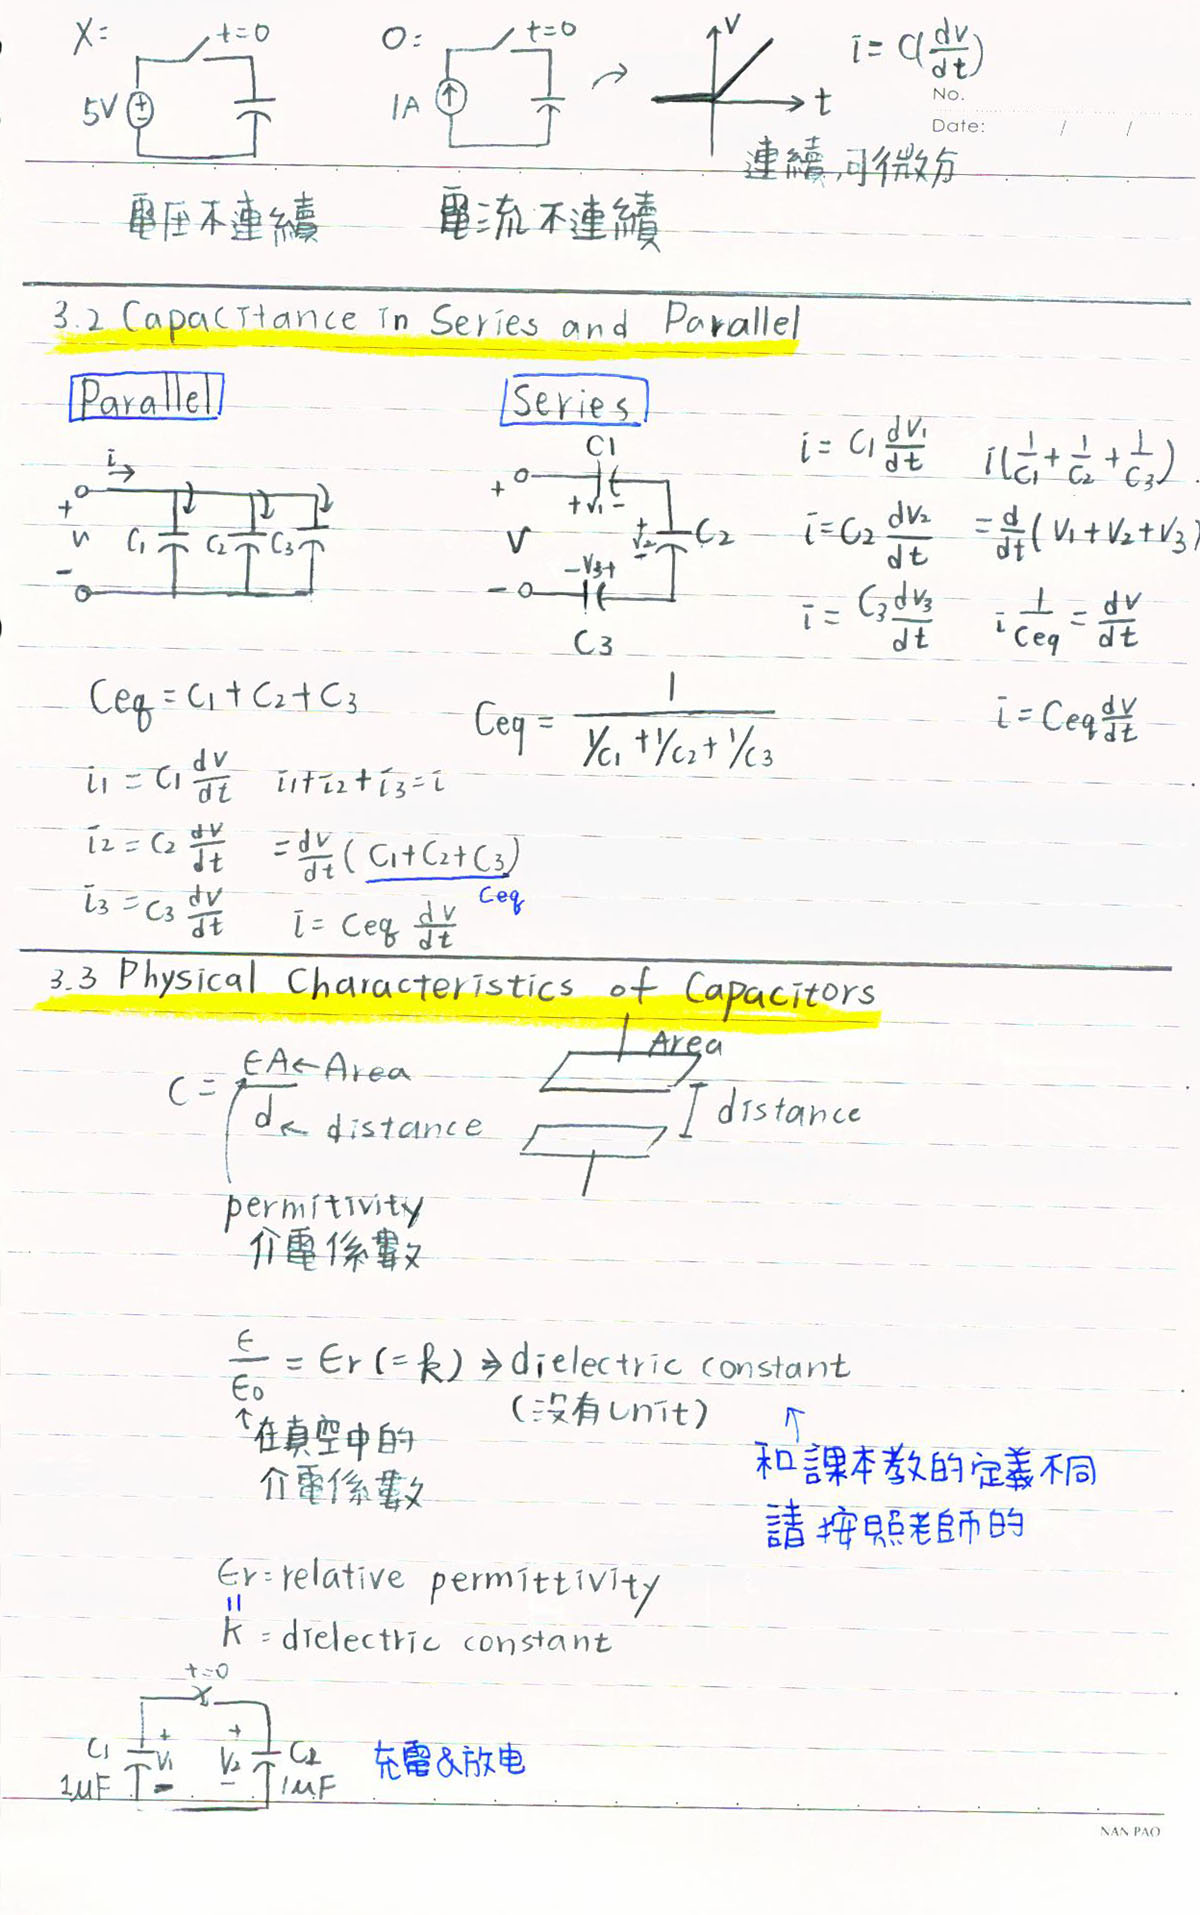 X: t=0 O: t=0 V i = C(dv/dt)
5V 1A t
No.
Date: / /
連續,可微分
電压不連續 電流不連續
3.2 Capacitance in Series and Parallel
Parallel Series
i C1 i = C1 dv1/dt i(1/C1 + 1/C2 + 1/C3)
+ v - C1 C2 C3 + V - +v1- +v2- C2 i = C2 dv2/dt = d/dt(V1+V2+V3)
-v3+ C3 i = C3 dv3/dt i 1/Ceq = dv/dt
Ceq = C1+C2+C3 Ceq = 1/(1/C1 + 1/C2 + 1/C3) i = Ceq dv/dt
i1 = C1 dv/dt i1+i2+i3=i
i2 = C2 dv/dt = dv/dt (C1+C2+C3)
Ceq
i3 = C3 dv/dt i = Ceq dv/dt
3.3 Physical Characteristics of Capacitors
C = ϵA/d ←Area ← distance
Area
distance
permitivity
介電係數
ϵ/ϵ0 = ϵr (=k) → dielectric constant
(沒有unit) ↑
↑在真空中的
介電係數
和課本教的定義不同
請按照老師的
ϵr = relative permittivity
=
k = dielectric constant
t=0
C1 + V1 - + V2 - C2
1μF 1μF
充電&放电
NAN PAO